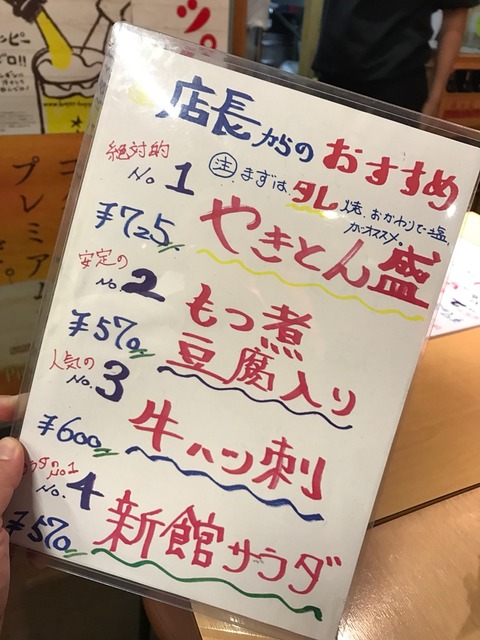 店長からのおすすめ
絶対的
No.1
注 まずは、タレ焼、おかわりで塩、
がオススメ。
やきとん盛
¥725
安定の
No.2
もつ煮
豆腐入り
¥570
人気の
No.3
牛ハツ刺
¥600
サラダのNo.1
No.4
新館サラダ
¥570
プレミアム